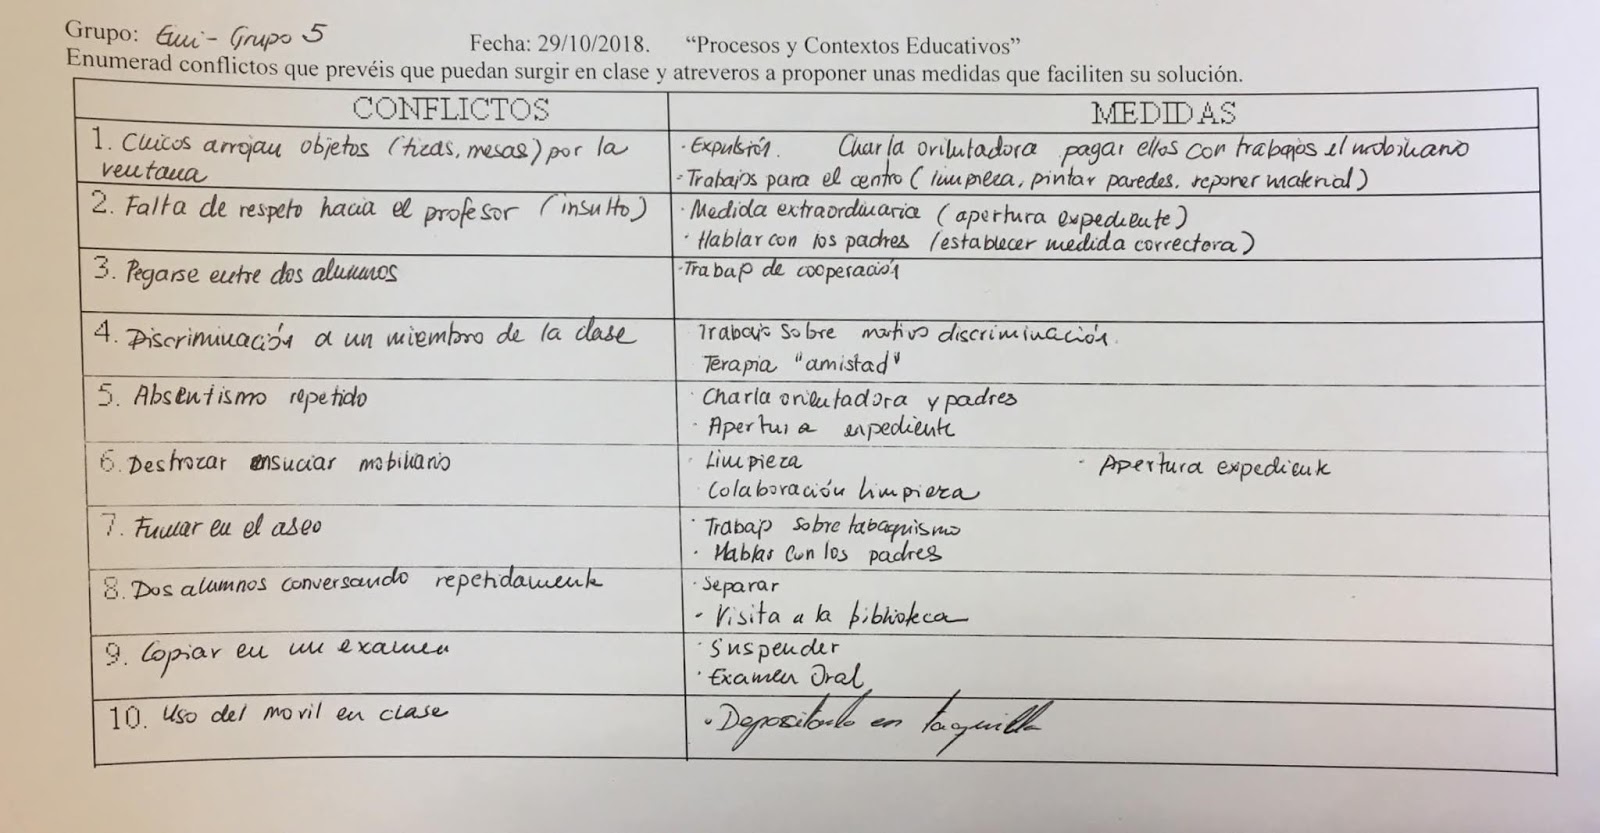 Grupo: Eui - Grupo 5 Fecha: 29/10/2018. “Procesos y Contextos Educativos”
Enumerad conflictos que prevéis que puedan surgir en clase y atreveros a proponer unas medidas que faciliten su solución.
CONFLICTOS MEDIDAS
1. Chicos arrojan objetos (tizas, mesas) por la
ventana
· Expulsión. Charla orientadora pagar ellos con trabajos el mobiliario
- Trabajos para el centro (limpieza, pintar paredes, reponer material)
2. Falta de respeto hacia el profesor (insulto)
· Medida extraordinaria (apertura expediente)
· Hablar con los padres (establecer medida correctora)
3. Pegarse entre dos alumnos
· Trabajo de cooperación
4. Discriminación a un miembro de la clase
Trabajo sobre motivo discriminación.
Terapia "amistad"
5. Absentismo repetido
· Charla orientadora y padres
· Apertura expediente
6. Destrozar ensuciar mobiliario
· Limpieza · Apertura expediente
Colaboración limpieza
7. Fumar en el aseo
· Trabajo sobre tabaquismo
· Hablar con los padres
8. Dos alumnos conversando repetidamente
· Separar
- Visita a la biblioteca
9. Copiar en un examen
· Suspender
· Examen Oral
10. Uso del movil en clase
· Depositarlo en taquilla